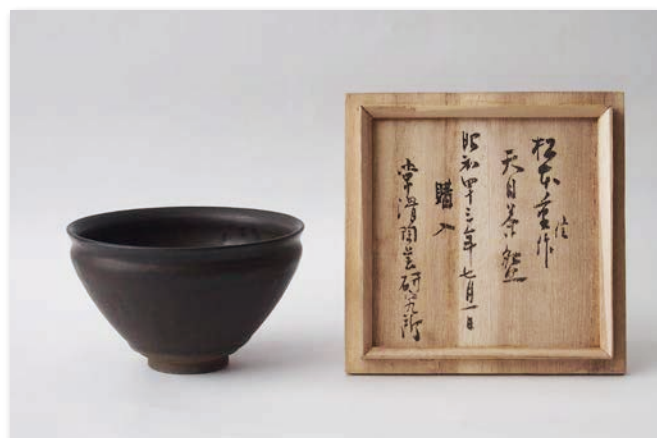 松本重信作
天目茶盌
昭和四十三年七月一日
購入
常滑陶芸研究所